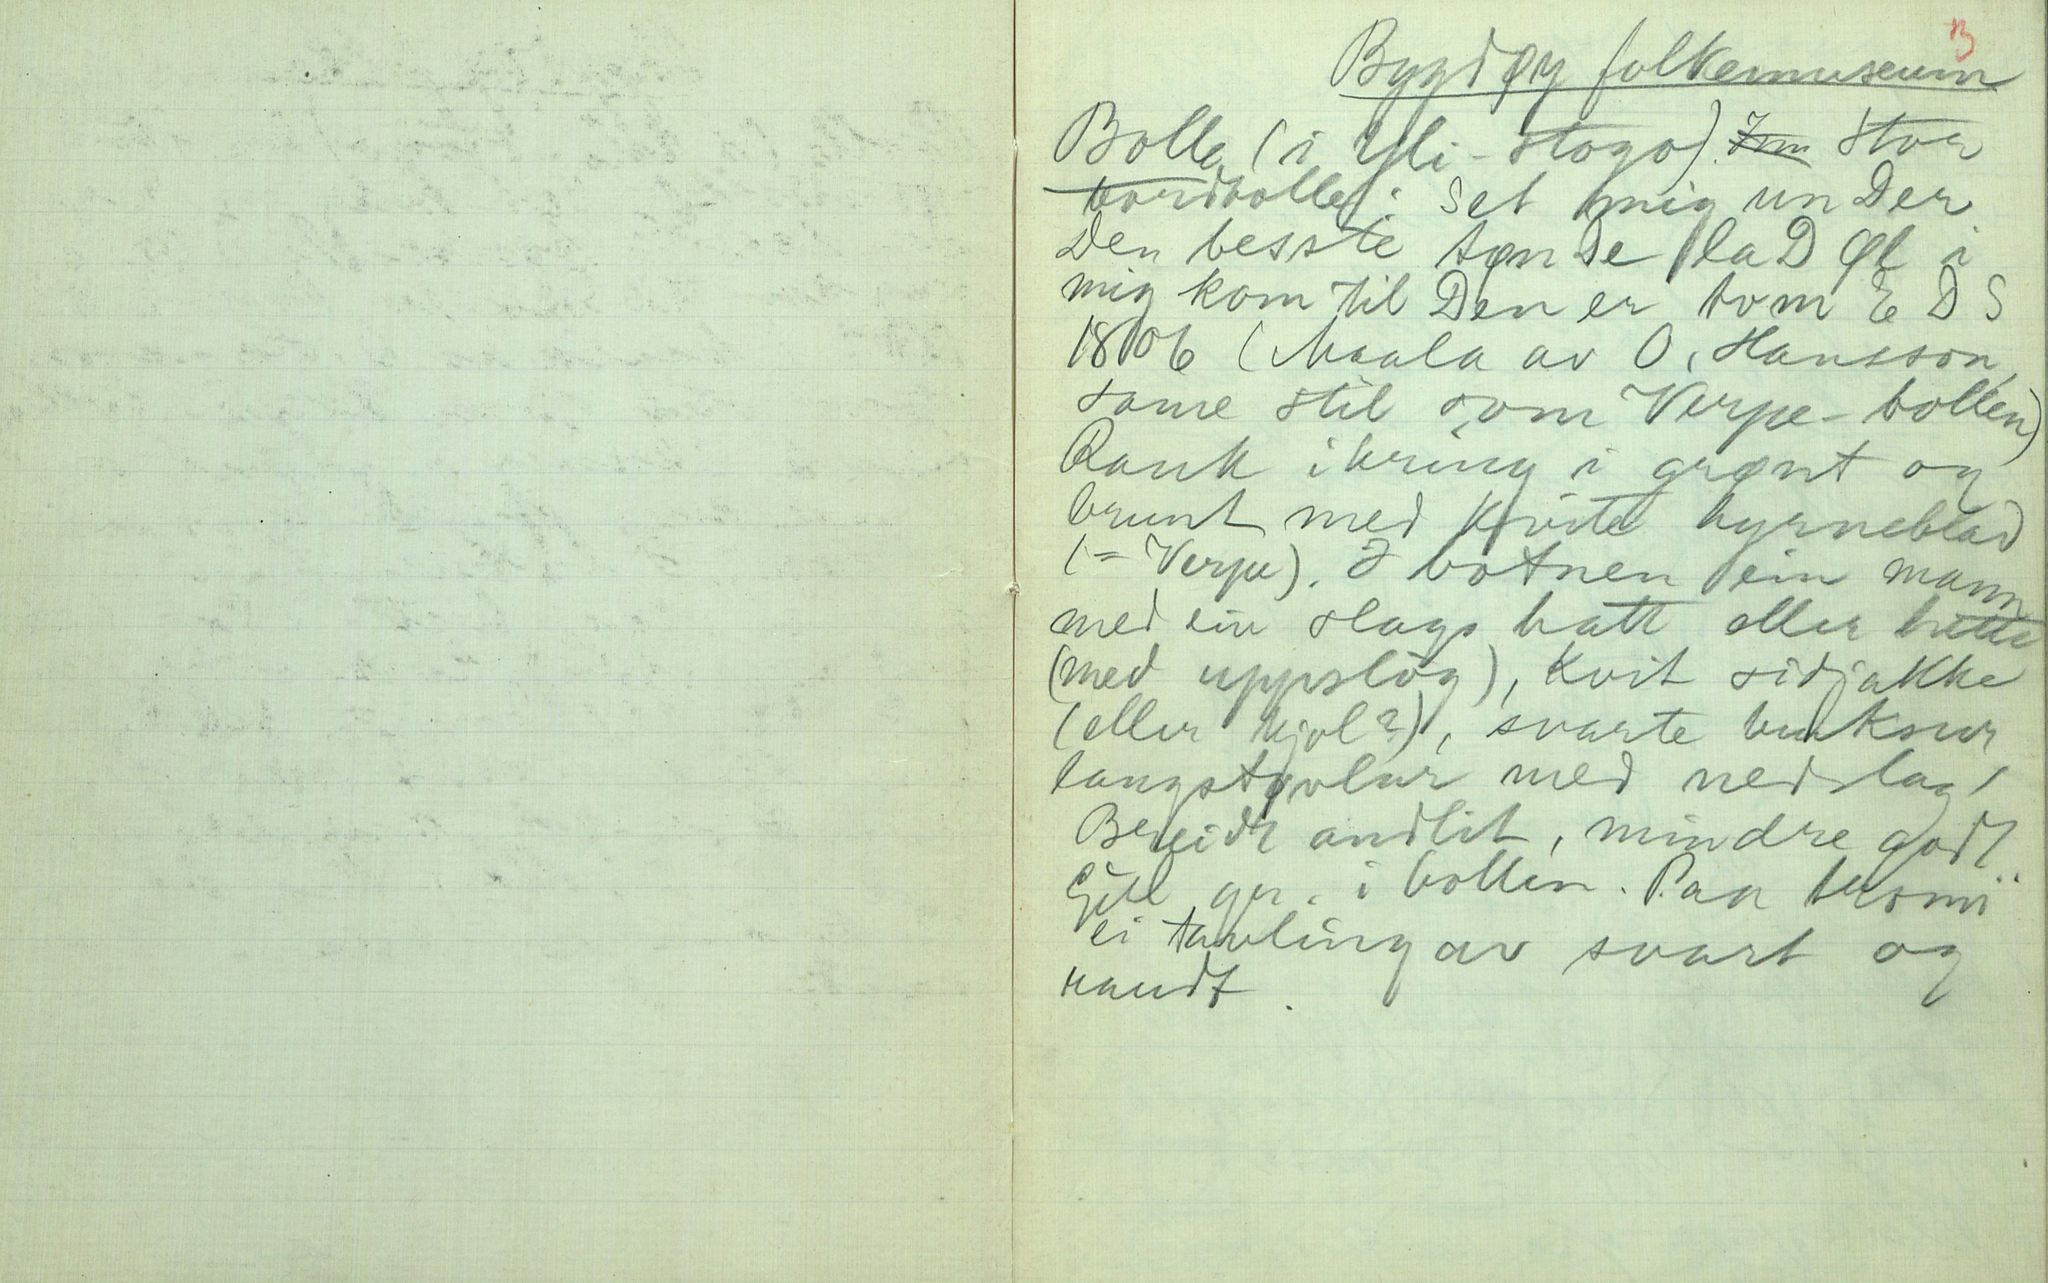 13
Bygdøy folkemuseum
Bolle (i Yli-stogo). Stor
bordbolle: Set mig unDer
Den besste tønDe laD Øl i
mig kom til Den er tom E D S
1806 (Maala av O. Hansson,
same stil som Verpe-bollen)
Rank ikring i grønt og
brunt med kvite hyrneblad
(= Verpe). I botnen ein mann
med ein slags hatt eller hette
(med uppslög), kvit sidjakke
(eller kjol?), svarte buksur
langstøvlur med nedslag,
Breidt andlit, mindre godt
Gul gr. i bollen. Paa
ei tavling av svart og
raudt.